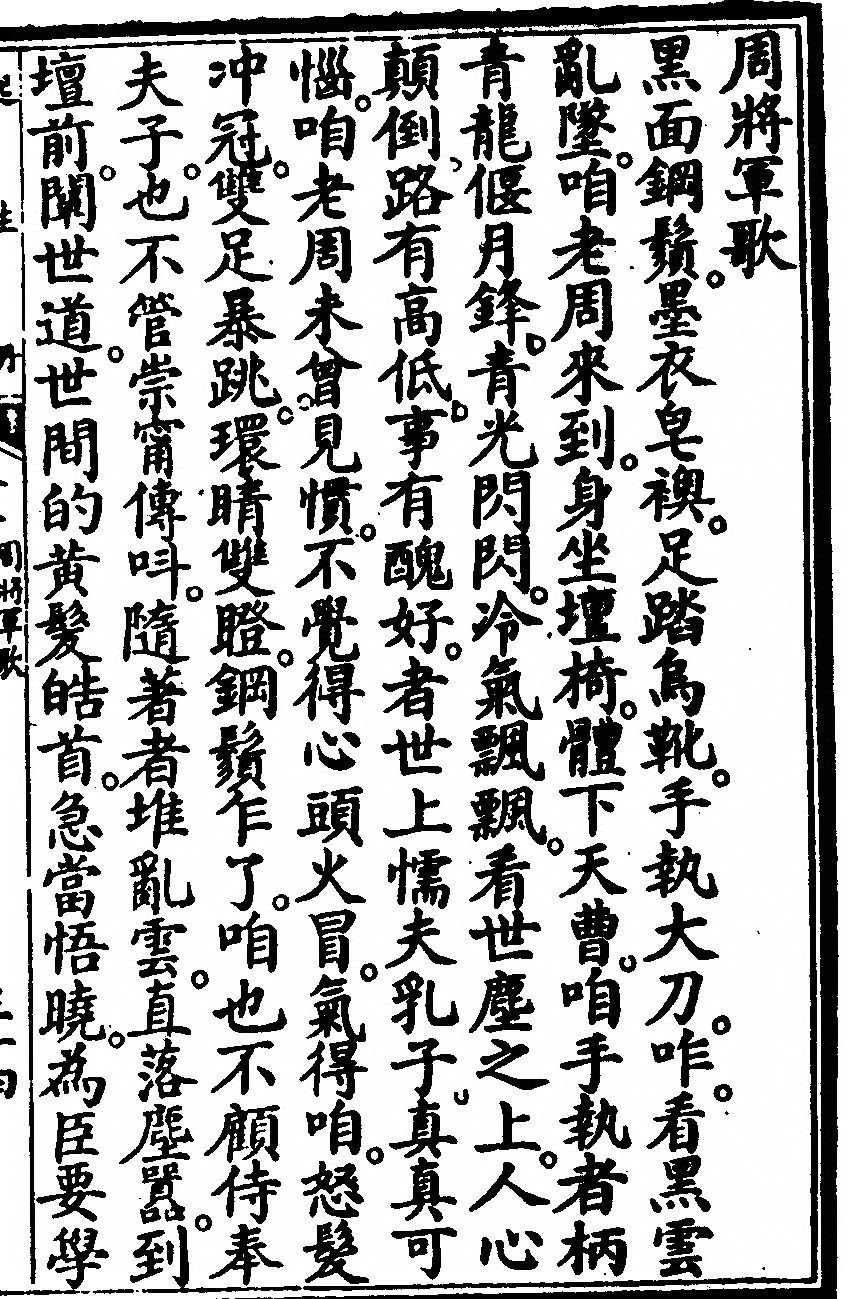 周將軍歌
黑面鋼鬚。墨衣皂襖。足踏烏靴。手執大刀。咋。看黑雲
亂墜。咱老周來到。身坐壇椅。體下天曹。咱手執者柄
青龍偃月鋒。青光閃閃。冷氣飄飄。看世塵之上。人心
顛倒。路有高低。事有醜好。者世上懦夫乳子。真真可
惱。咱老周未曾見慣。不覺得心頭火冒。氣得咱。怒髮
冲冠。雙足暴跳。環睛雙瞪。鋼鬚乍了。咱也不顧侍奉
夫子。也不管崇甯傳呌。隨著者堆亂雲。直落塵囂。到
壇前。闡世道。世間的黃髮皓首。急當悟曉。為臣要學
周將軍歌